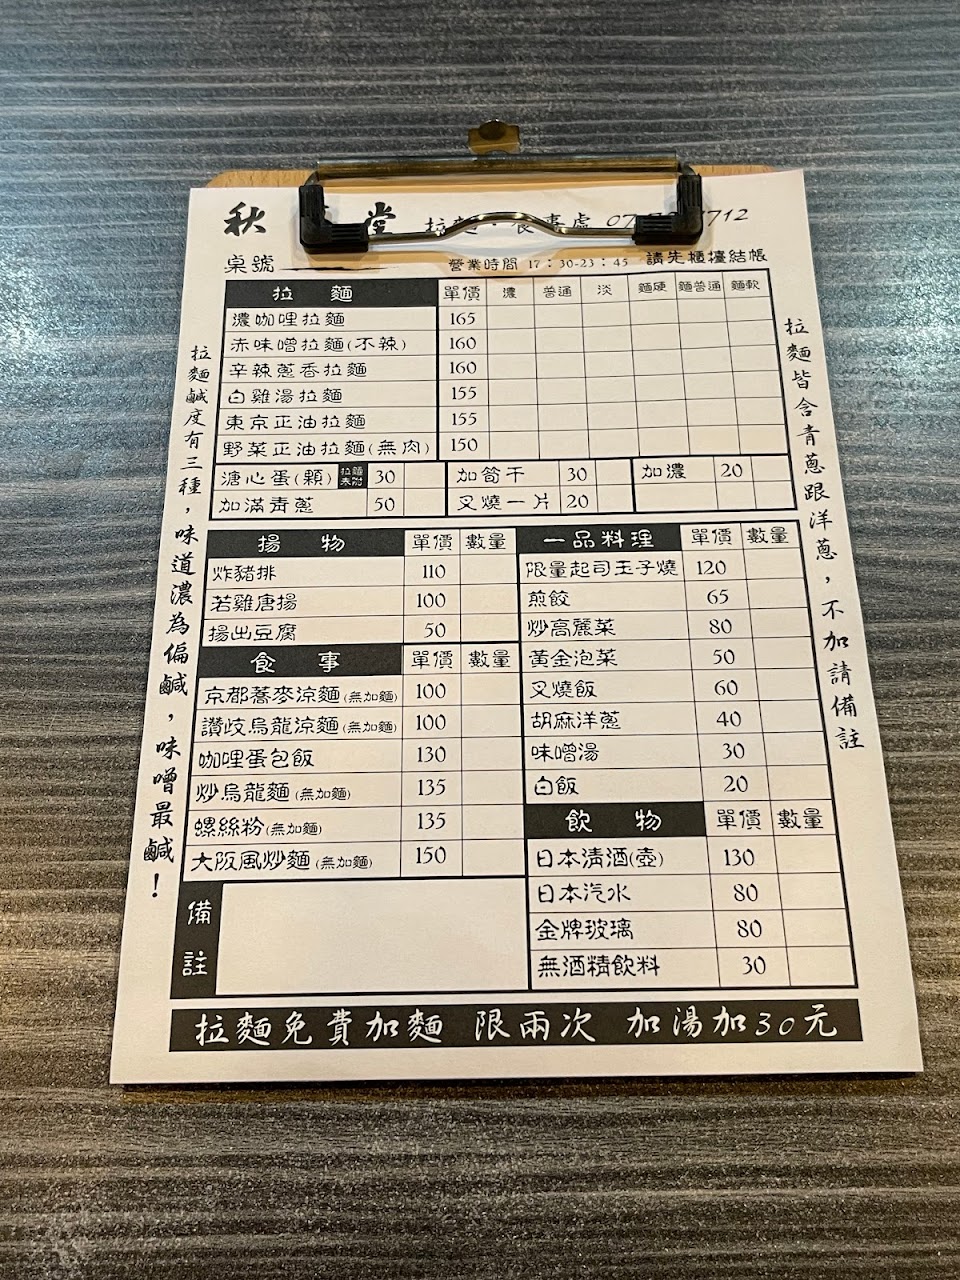 秋 堂 拉麵·食事處 07 712
桌號
營業時間 17：30-23：45 請先櫃檯結帳
拉麵 單價 濃 普通 淡 麵硬 麵普通 麵軟
濃咖哩拉麵 165
赤味噌拉麵(不辣) 160
辛辣蔥香拉麵 160
白雞湯拉麵 155
東京正油拉麵 155
野菜正油拉麵(無肉) 150
溏心蛋(顆) 拉麵未附 30 加筍干 30 加濃 20
加滿青蔥 50 叉燒一片 20
揚物 單價 數量
炸豬排 110
若雞唐揚 100
揚出豆腐 50
食事 單價 數量
京都蕎麥涼麵(無加麵) 100
讚歧烏龍涼麵(無加麵) 100
咖哩蛋包飯 130
炒烏龍麵(無加麵) 135
螺絲粉(無加麵) 135
大阪風炒麵(無加麵) 150
一品料理 單價 數量
限量起司玉子燒 120
煎餃 65
炒高麗菜 80
黃金泡菜 50
叉燒飯 60
胡麻洋蔥 40
味噌湯 30
白飯 20
飲物 單價 數量
日本清酒(壺) 130
日本汽水 80
金牌玻璃 80
無酒精飲料 30
備註
拉麵免費加麵 限兩次 加湯加30元
拉麵鹹度有三種，味道濃為偏鹹，味噌最鹹！
拉麵皆含青蔥跟洋蔥，不加請備註